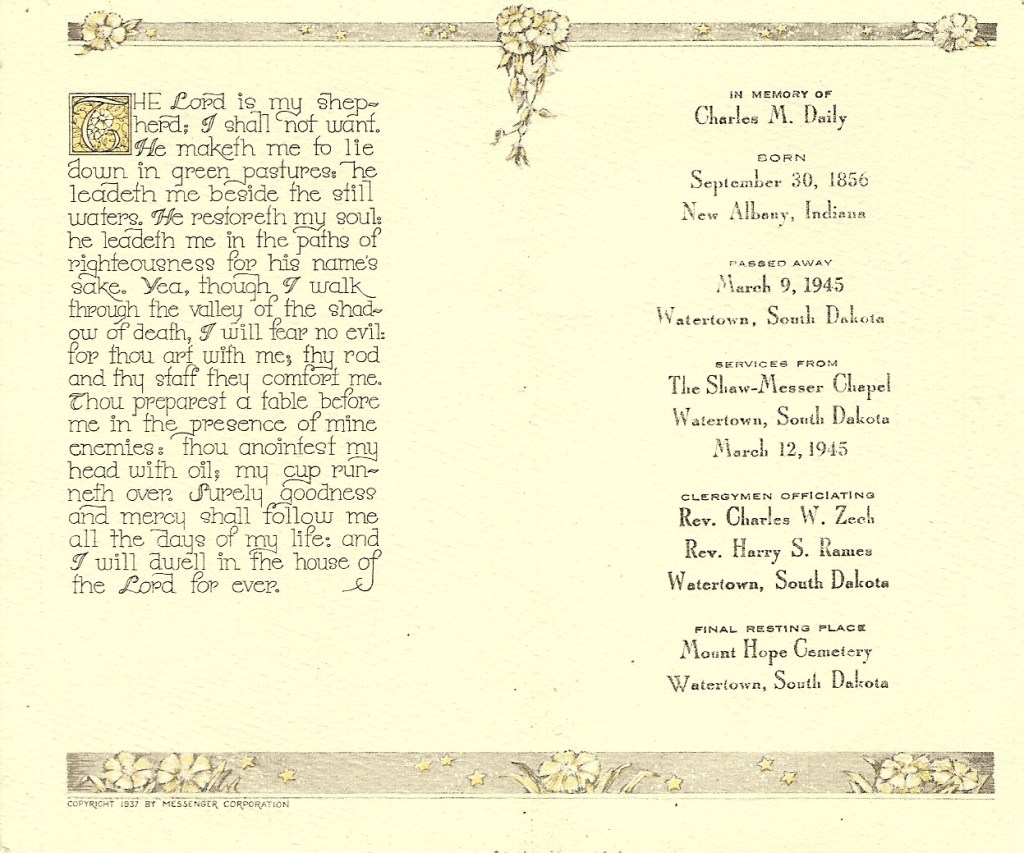 THE Lord is my shep~
herd; I shall not want.
He maketh me to lie
down in green pastures: he
leadeth me beside the still
waters. He restoreth my soul:
he leadeth me in the paths of
righteousness for his name's
sake. Yea, though I walk
through the valley of the shad~
ow of death, I will fear no evil:
for thou art with me; thy rod
and thy staff they comfort me.
Thou preparest a table before
me in the presence of mine
enemies: thou anointest my
head with oil; my cup run~
neth over. Surely goodness
and mercy shall follow me
all the days of my life: and
I will dwell in the house of
the Lord for ever.
IN MEMORY OF
Charles M. Daily
BORN
September 30, 1856
New Albany, Indiana
PASSED AWAY
March 9, 1945
Watertown, South Dakota
SERVICES FROM
The Shaw-Messer Chapel
Watertown, South Dakota
March 12, 1945
CLERGYMEN OFFICIATING
Rev. Charles W. Zech
Rev. Harry S. Rames
Watertown, South Dakota
FINAL RESTING PLACE
Mount Hope Cemetery
Watertown, South Dakota
COPYRIGHT 1937 BY MESSENGER CORPORATION